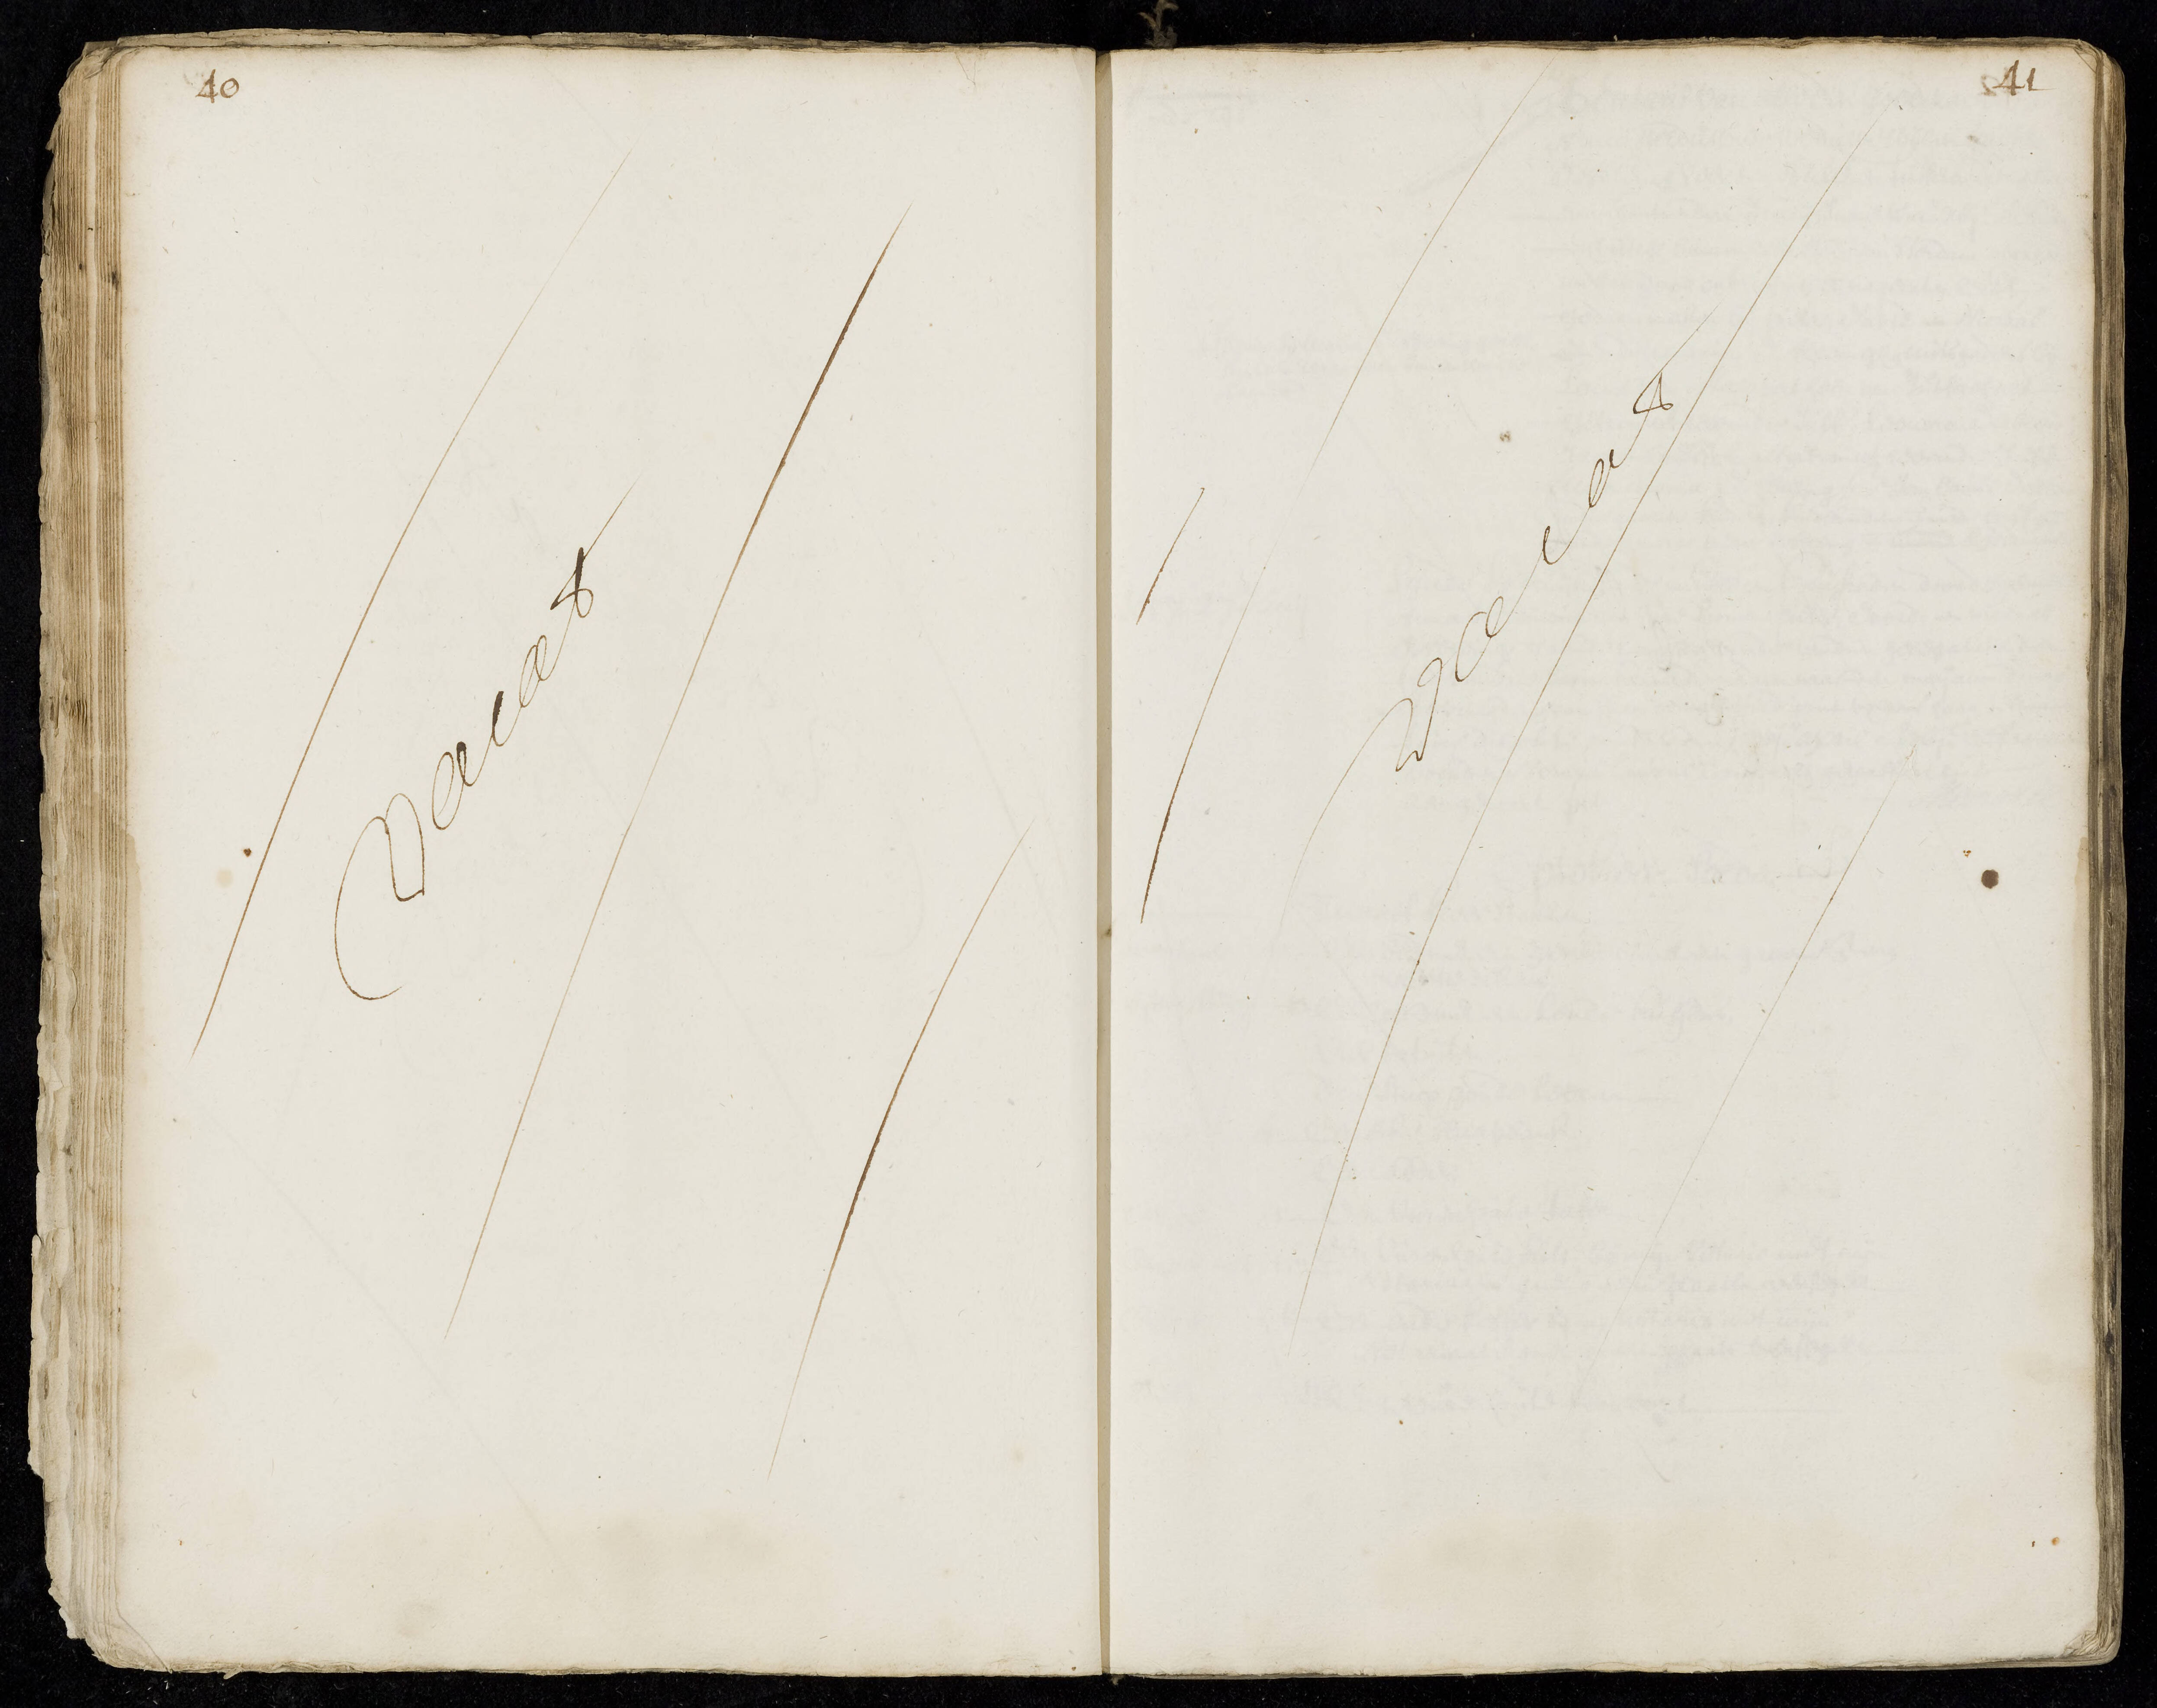 40
Vacat
41
Vacat